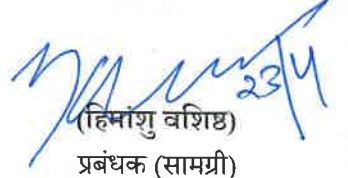 23/4
(हिमांशु वशिष्ठ)
प्रबंधक (सामग्री)